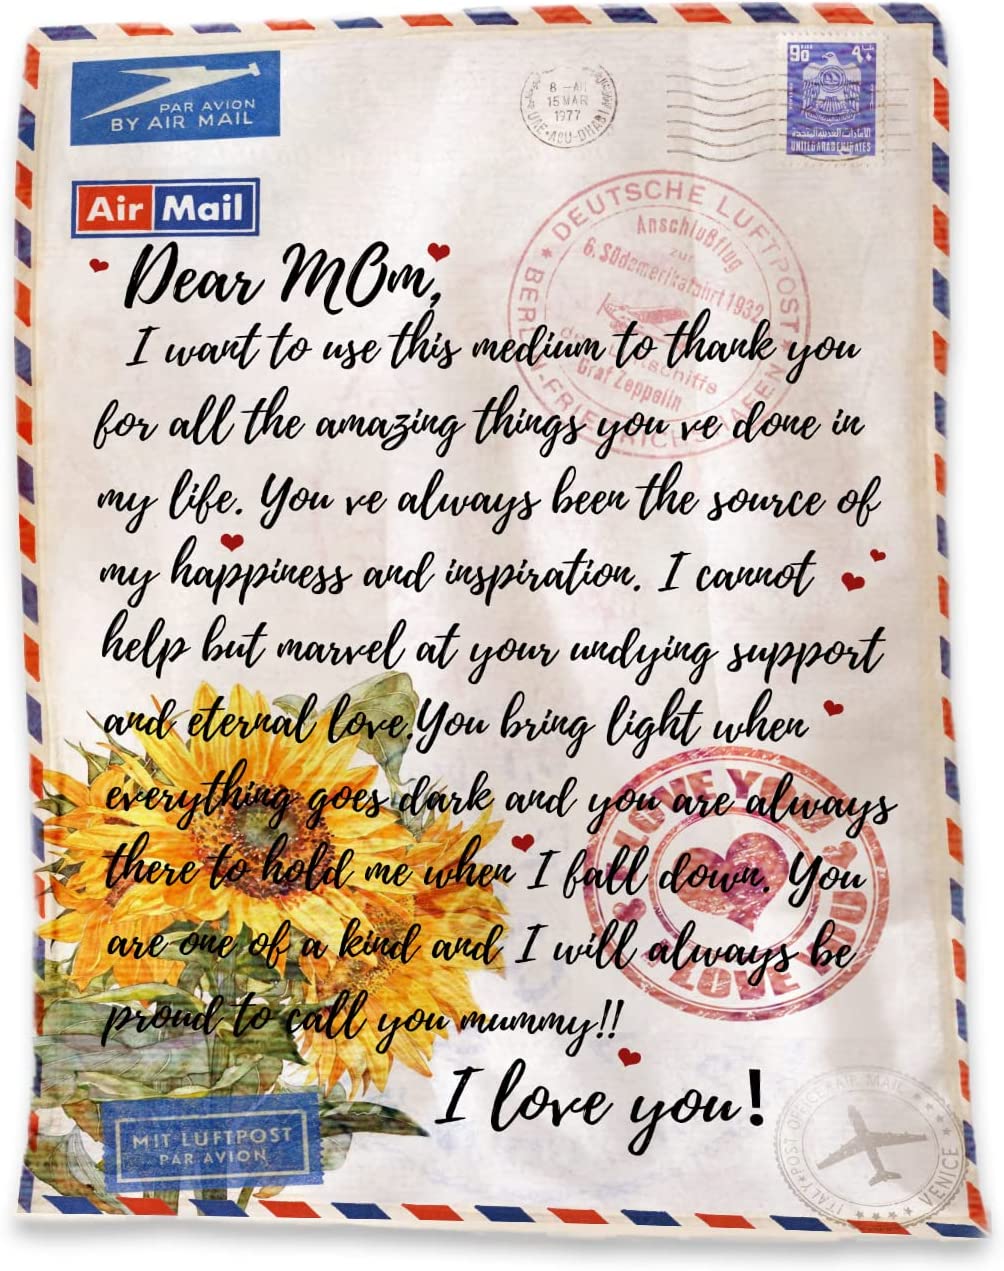 PAR AVION
BY AIR MAIL
8 - AM
15 MAR
1977
U.A.E-ABU-DHABI
90
٩٠
الإمارات العربية المتحدة
UNITED ARAB EMIRATES
Air Mail
DEUTSCHE LUFTPOST
Anschlußflug
zur
6. Südamerikafahrt 1932
Luftschiffs
Graf Zeppelin
BERLIN-FRIEDRICHSHAFEN
Dear MOm,
I want to use this medium to thank you
for all the amazing things you ve done in
my life. You ve always been the source of
my happiness and inspiration. I cannot
help but marvel at your undying support
and eternal love.You bring light when
everything goes dark and you are always
there to hold me when I fall down. You
are one of a kind and I will always be
proud to call you mummy!!
I love you!
I LOVE YOU
I LOVE YOU
MIT LUFTPOST
PAR AVION
ITALY POST OFFICE AIR MAIL
VENICE